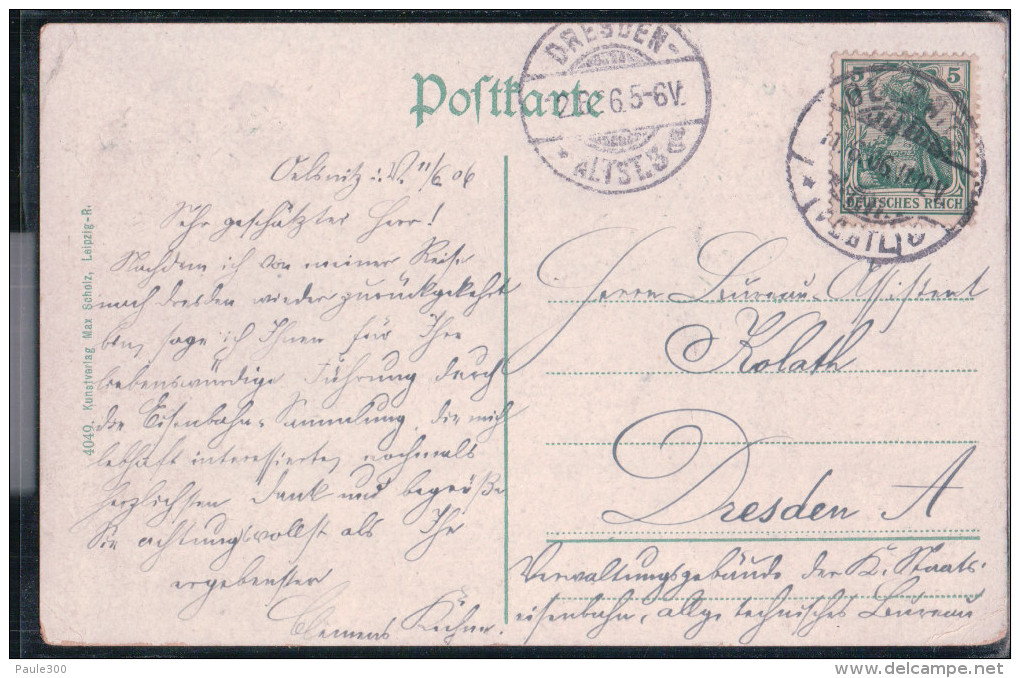 Postkarte
DRESDEN-
12.6. 6.5-6V.
* ALTST.3
5 5
DEUTSCHES REICH
4049. Kunstverlag Max Scholz, Leipzig-R.
Oelsnitz i. V. 11/6 06
Sehr geschätzter Herr!
Nachdem ich von meiner Reise
nach Dresden wieder zurückgekehrt
bin, sage ich Ihnen für Ihre
liebenswürdige Führung durch
die Eisenbahn-Sammlung, die mich
lebhaft interessierte, nochmals
herzlichsten Dank und begrüße
Sie achtungsvollst als Ihr
ergebenster
Clemens
Herrn Bureau-Assistent
Kolath
Dresden A
Verwaltungsgebäude der K. Staats-
eisenbahn, allg. technisches Bureau
Paule300
delcampe.net